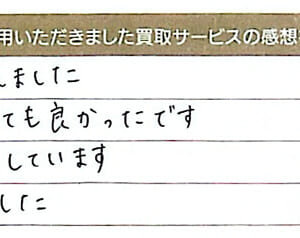 用いただきました買取サービスの感想
しました
ても良かったです
しています
した